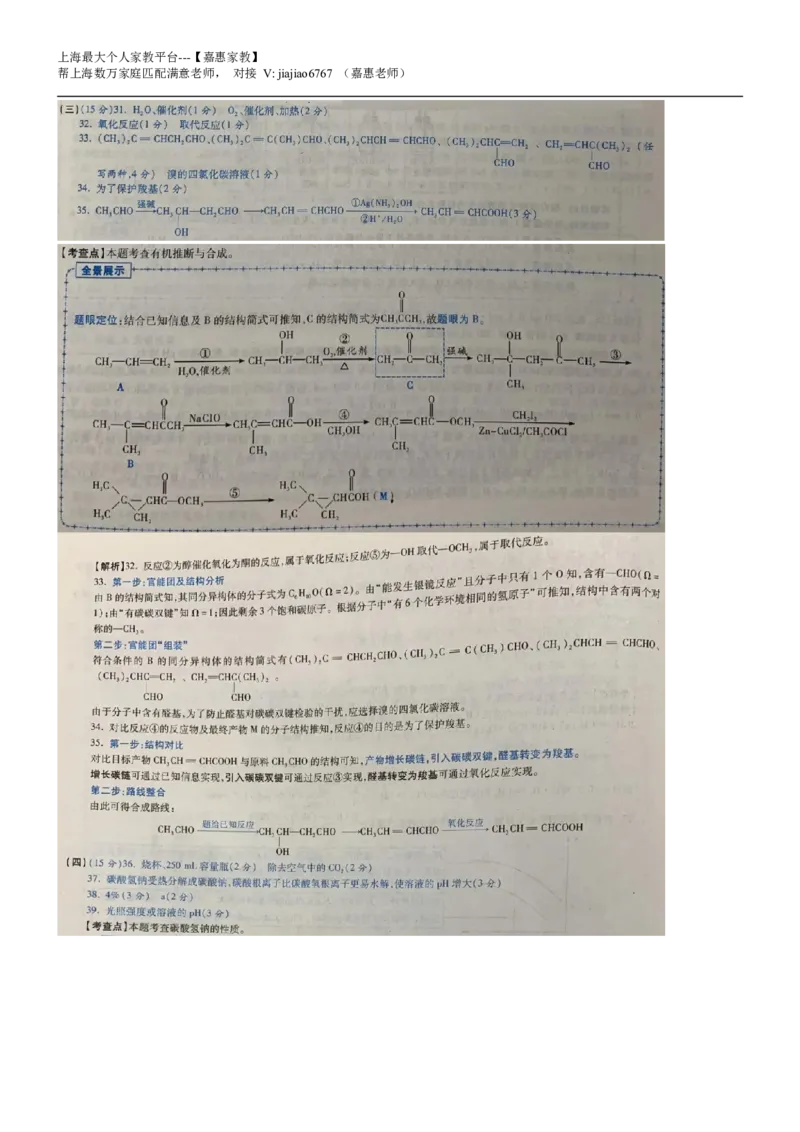 上海最大个人家教平台---【嘉惠家教】
帮上海数万家庭匹配满意老师， 对接 V: jiajiao6767 （嘉惠老师）
(三)(15分)31. H₂O、催化剂(1分) O₂、催化剂、加热(2分)
32. 氧化反应(1分) 取代反应(1分)
33. (CH₃)₂C=CHCH₂CHO、(CH₃)₂C=C(CH₃)CHO、(CH₃)₂CHCH=CHCHO、(CH₃)₂CHC=CH₂ 、CH₂=CHC(CH₃)₂ (任
CHO CHO
写两种,4分) 溴的四氯化碳溶液(1分)
34. 为了保护羧基(2分)
35. CH₃CHO 强碱 CH₃CH—CH₂CHO CH₃CH=CHCHO ①Ag(NH₃)₂OH ②H⁺/H₂O CH₃CH=CHCOOH(3分)
OH
【考查点】本题考查有机推断与合成。
全景展示
O
题眼定位:结合已知信息及B的结构简式可推知,C的结构简式为CH₃CCH₃,故题眼为B。
OH ② O OH O
CH₃—CH=CH₂ ① CH₃—CH—CH₃ O₂,催化剂 CH₃—C—CH₃ 强碱 CH₃—C—CH₂—C—CH₃ ③
H₂O,催化剂 △
A C CH₃
O O ④ O
CH₃—C=CHCCH₃ NaClO CH₃C=CHC—OH CH₃OH CH₃C=CHC—OCH₃ CH₂I₂
Zn-CuCl₂/CH₃COCl
CH₃ CH₃ CH₃
B
H₃C O ⑤ H₃C O
C—CHC—OCH₃ C—CHCOH (M)
H₃C CH₂ H₃C CH₂
【解析】32. 反应②为醇催化氧化为酮的反应,属于氧化反应;反应⑤为—OH取代—OCH₃,属于取代反应。
33. 第一步:官能团及结构分析
由B的结构简式知,其同分异构体的分子式为C₆H₁₀O(Ω=2)。由“能发生银镜反应”且分子中只有1个O知,含有—CHO(Ω=
1);由“有碳碳双键”知Ω=1;因此剩余3个饱和碳原子。根据分子中“有6个化学环境相同的氢原子”可推知,结构中含有两个对
称的—CH₃。
第二步:官能团“组装”
符合条件的B的同分异构体的结构简式有(CH₃)₂C=CHCH₂CHO、(CH₃)₂C=C(CH₃)CHO、(CH₃)₂CHCH=CHCHO、
(CH₃)₂CHC=CH₂ 、CH₂=CHC(CH₃)₂ 。
CHO CHO
由于分子中含有醛基,为了防止醛基对碳碳双键检验的干扰,应选择溴的四氯化碳溶液。
34. 对比反应④的反应物及最终产物M的分子结构推知,反应④的目的是为了保护羧基。
35. 第一步:结构对比
对比目标产物CH₃CH=CHCOOH与原料CH₃CHO的结构可知,产物增长碳链,引入碳碳双键,醛基转变为羧基。
增长碳链可通过已知信息实现,引入碳碳双键可通过反应③实现,醛基转变为羧基可通过氧化反应实现。
第二步:路线整合
由此可得合成路线:
CH₃CHO 题给已知反应 CH₃CH—CH₂CHO CH₃CH=CHCHO 氧化反应 CH₃CH=CHCOOH
OH
(四)(15分)36. 烧杯、250 mL容量瓶(2分) 除去空气中的CO₂(2分)
37. 碳酸氢钠受热分解成碳酸钠,碳酸根离子比碳酸氢根离子更易水解,使溶液的pH增大(3分)
38. 4%(3分) a(2分)
39. 光照强度或溶液的pH(3分)
【考查点】本题考查碳酸氢钠的性质。